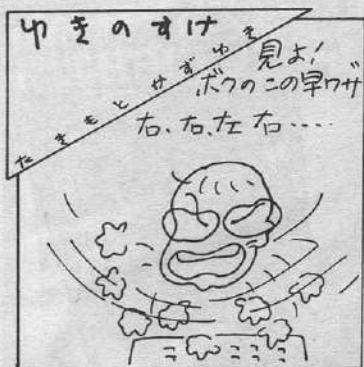 ゆきのすけ
たきもとかずゆき
見よ!
ボクのこの早ワザ
右、右、左 右‥‥‥